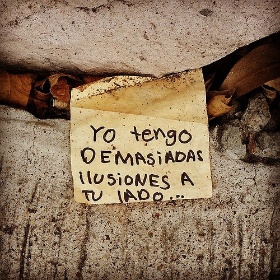 Yo tengo
DEMASIADAS
ilusiones A
TU lADO...